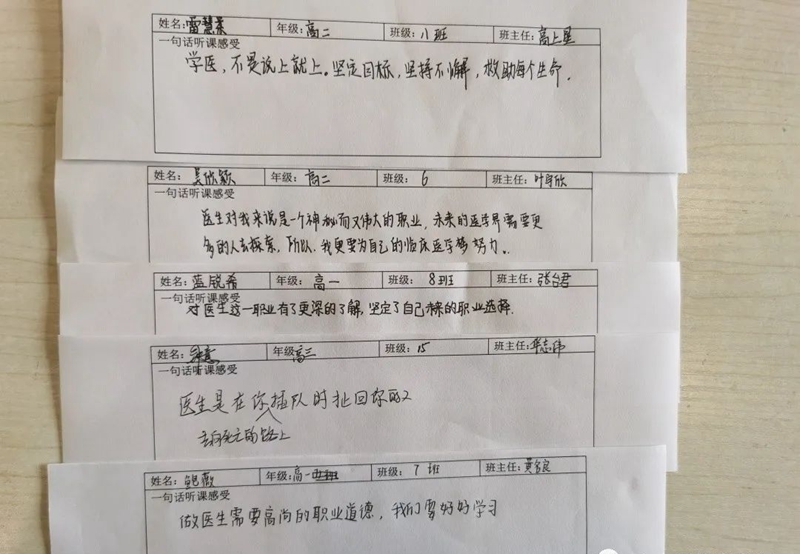 姓名: 雷慧景 年级: 高二 班级: 八班 班主任: 高上星
一句话听课感受
学医，不是说上就上。坚定目标，坚持不懈，救助每个生命.
姓名: 吴欣颖 年级: 高二 班级: 6 班主任: 叶身欣
一句话听课感受
医生对我来说是一个神秘而又伟大的职业，未来的医学界需要更
多的人去探索，所以，我更要为自己的临床医学梦努力..
姓名: 蓝锐希 年级: 高一 班级: 8班 班主任: 张台君
一句话听课感受
对医生这一职业有了更深的了解，坚定了自己未来的职业选择.
姓名: 年级 高三 班级: 15 班主任:
一句话听课感受
医生是在你插队时扯回你的人
去向死亡的路上
姓名: 鲍薇 年级: 高一 班级: 7班 班主任:
一句话听课感受
做医生需要高尚的职业道德，我们要好好学习